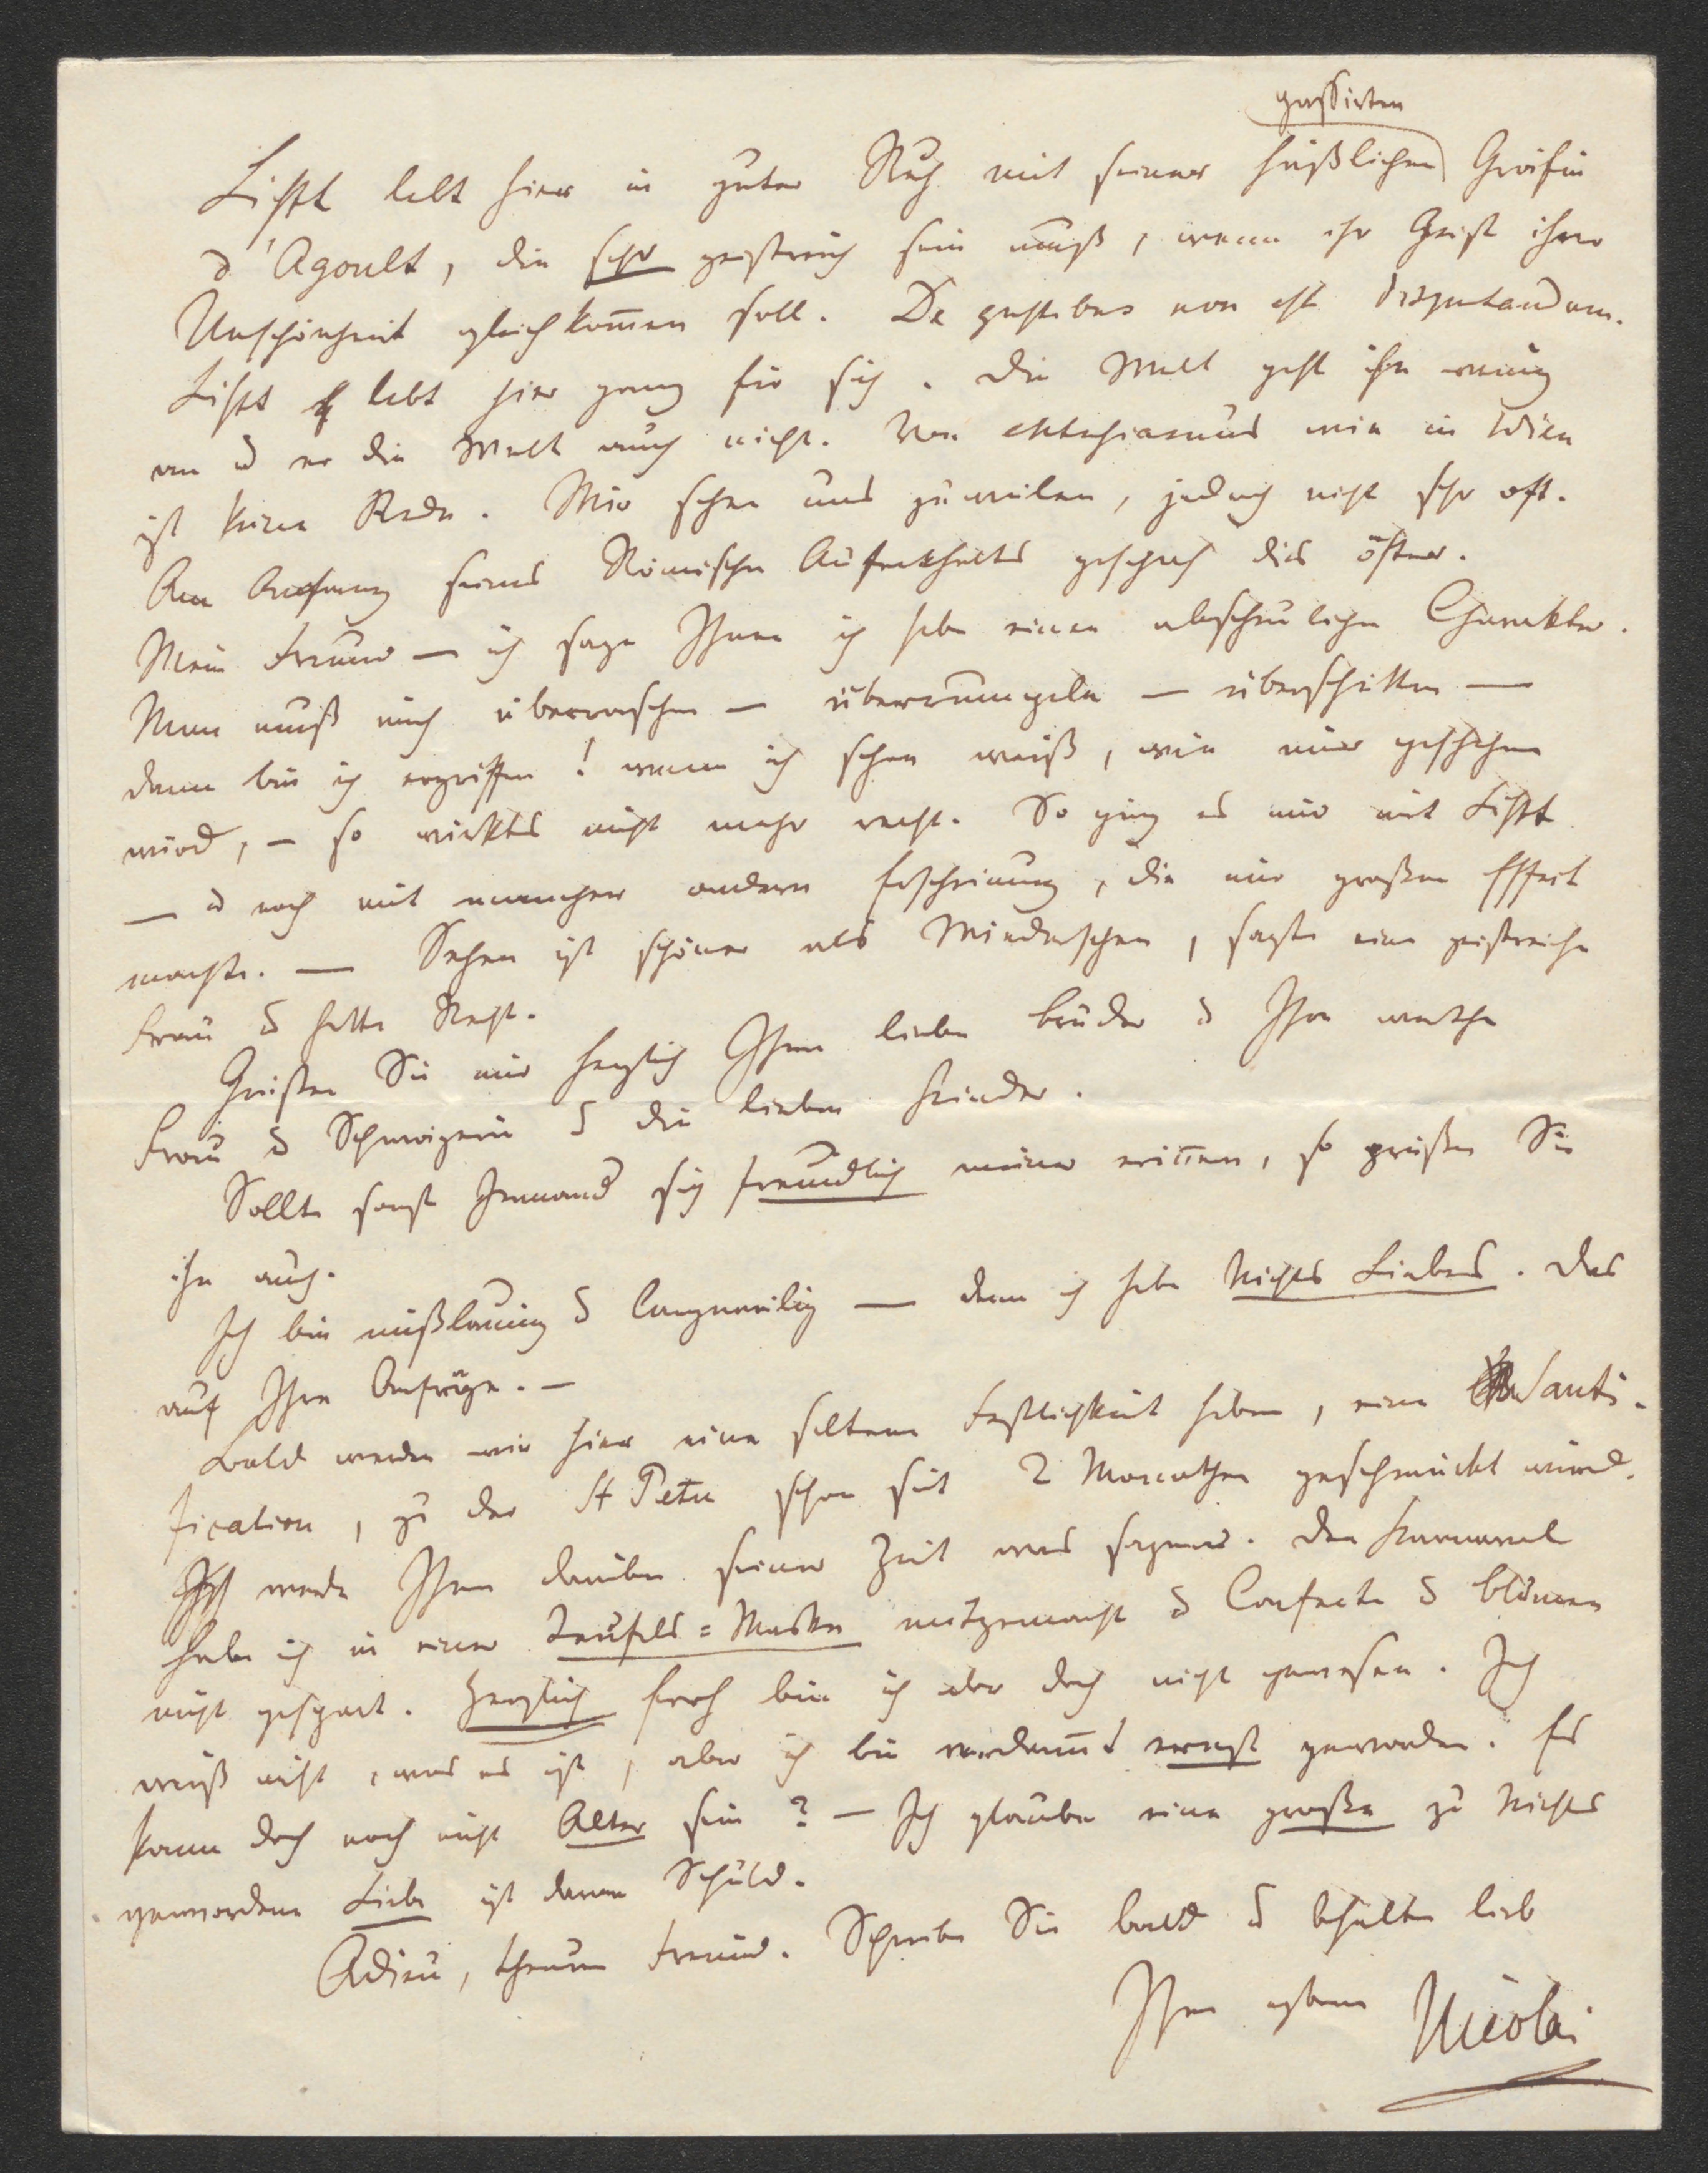 passirten
Liszt lebt hier in guter Ruh mit seiner häßlichen Gräfin
d'Agoult, die sehr geistreich sein muß, wenn ihr Geist ihrer
Unschönheit gleichkom̄en soll. De gustibus non est disputandum.
Liszt lebt hier ganz für sich. Die Welt geht ihn wenig
an u er die Welt auch nicht. Von Enthusiasmus wie in Wien
ist keine Rede. Wir sehen uns zuweilen, jedoch nicht sehr oft.
Am Anfang seines Römischen Aufenthalts geschah dies öfter.
Mein Freund — ich sage Ihnen ich habe einen abscheulichen Charakter.
Man muß mich überraschen — überrumpeln — überschütten —
dann bin ich ergriffen! wenn ich schon weiß, wie mir geschehen
wird, — so wirkts nicht mehr recht. So ging es mir mit Liszt
— u noch mit mancher andern Erscheinung, die mir großen Effect
machte. — Sehen ist schöner als Wiedersehen, sagte eine geistreiche
Frau u hatte Recht.
Grüßen Sie mir herzlich Ihren lieben Bruder u Ihre werthe
Frau u Schwägerin u die lieben Kinder.
Sollte sonst Jemand sich freundlich meiner erin̄ern, so grüßen Sie
ihn auch.
Ich bin mißlaunig u langweilig — denn ich habe Nichts Liebes. Das
auf Ihre Anfrage. —
Bald werden wir hier eine seltene Festlichkeit haben, eine Santi-
fication, zu der St Peter schon seit 2 Monathen geschmückt wird.
Ich werde Ihnen darüber seiner Zeit was sagen. Den Karneval
habe ich in einer Teufels=Maske mitgemacht u Confecte u Blumen
nicht gespart. Herzlich froh bin ich aber doch nicht gewesen. Ich
weiß nicht, was es ist, aber ich bin verdam̄t ernst geworden. Es
kann doch noch nicht Alter sein? — Ich glaube eine große zu Nichts
gewordene Liebe ist daran Schuld.
Adieu, theurer Freund. Schreiben Sie bald u behalten lieb
Ihren ergebenen Nicolai